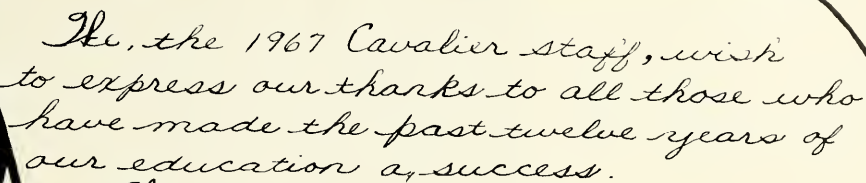 We, the 1967 Cavalier staff, wish
to express our thanks to all those who
have made the past twelve years of
our education a success.